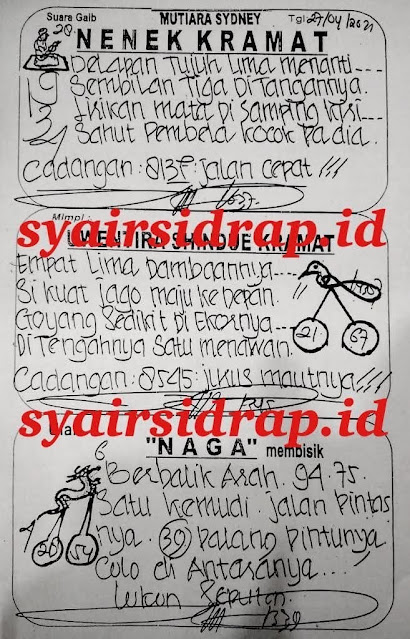 Suara Gaib MUTIARA SYDNEY Tgl: 27/04/2021
20 NENEK KRAMAT
Delapan Tujuh Lima menanti
9 Sembilan Tiga Di Tangannya.
3 Lirikan mata Di Samping
2 Sahut Pembela kocok Pa dia.
Cadangan: 2137: jalan cepat !!!
syairsidrap.id
Mimpi:
KRAMAT
Empat Lima Dambaannya
Si kuat Jago maju ke Depan.
Goyang Sedikit Di Ekornya
21 57
Di Tengahnya Satu menawan.
Cadangan: 2545: Jurus mautnya !!!!
syairsidrap.id
6 "NAGA" membisik
Berbalik Arah. 94.75.
Satu kemudi jalan Pintas
nya. 39 Palang Pintunya.
20 54
Colo di Antaranya....
1339